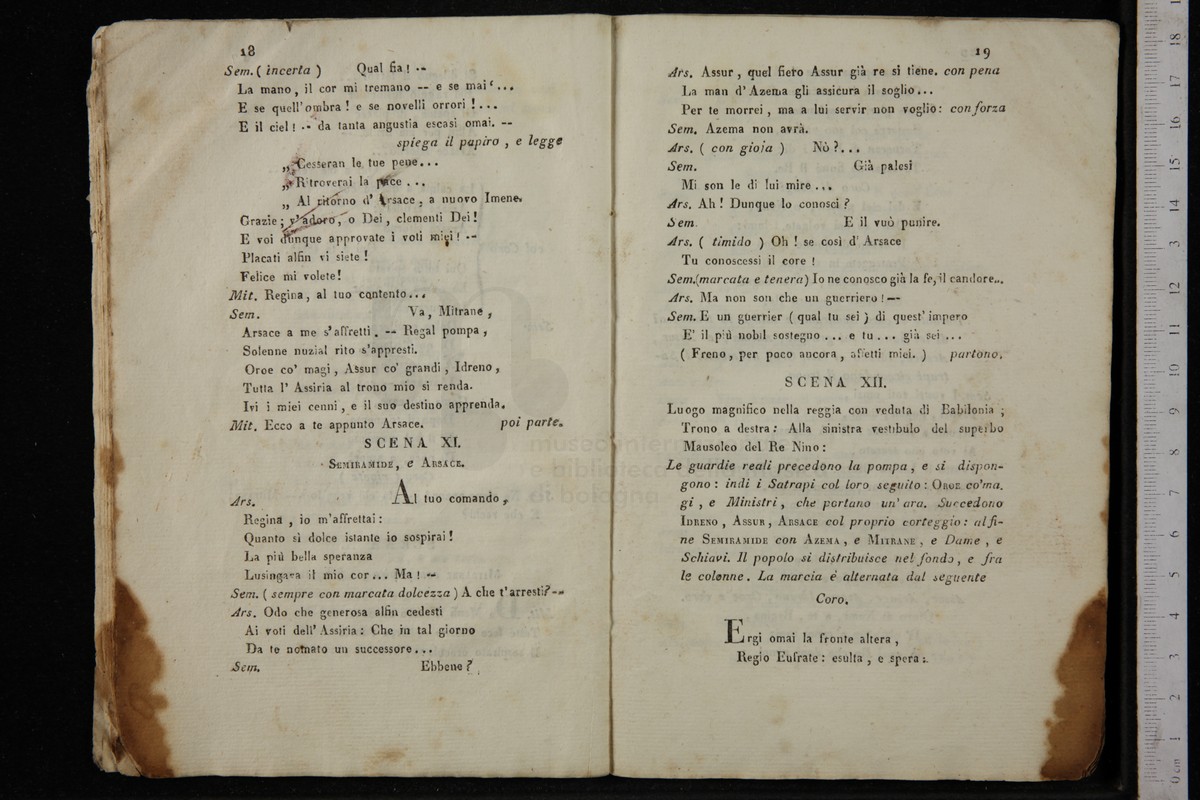 18
Sem. ( incerta ) Qual fia ! --
La mano, il cor mi tremano -- e se mai ...
E se quell' ombra ! e se novelli orrori ! ...
E il ciel ! -- da tanta angustia escasi omai. --
spiega il papiro , e legge
„ Cesseran le tue pene...
„ Ritroverai la pace ...
„ Al ritorno d' Arsace , a nuovo Imene.
Grazie ; v'adoro , o Dei , clementi Dei !
E voi dunque approvate i voti miei ! --
Placati alfin vi siete !
Felice mi volete!
Mit. Regina, al tuo contento...
Sem. Va, Mitrane ,
Arsace a me s'affretti. -- Regal pompa ,
Solenne nuzial rito s'appresti.
Oroe co' magi , Assur co' grandi , Idreno ,
Tutta l' Assiria al trono mio si renda.
Ivi i miei cenni , e il suo destino apprenda.
Mit. Ecco a te appunto Arsace. poi parte.
SCENA XI.
SEMIRAMIDE, e ARSACE.
Ars. Al tuo comando ,
Regina , io m'affrettai :
Quanto sì dolce istante io sospirai !
La più bella speranza
Lusingava il mio cor ... Ma ! --
Sem. ( sempre con marcata dolcezza ) A che t'arresti? --
Ars. Odo che generosa alfin cedesti
Ai voti dell' Assiria : Che in tal giorno
Da te nomato un successore...
Sem. Ebbene ?
19
Ars. Assur , quel fiero Assur già re si tiene. con pena
La man d'Azema gli assicura il soglio...
Per te morrei , ma a lui servir non voglio: con forza
Sem. Azema non avrà.
Ars. ( con gioia ) Nò ?...
Sem. Già palesi
Mi son le di lui mire ...
Ars. Ah ! Dunque lo conosci ?
Sem. E il vuò punire.
Ars. ( timido ) Oh ! se così d' Arsace
Tu conoscessi il core !
Sem. (marcata e tenera) Io ne conosco già la fe, il candore...
Ars. Ma non son che un guerriero ! --
Sem. E un guerrier ( qual tu sei ) di quest' impero
E' il più nobil sostegno ... e tu ... già sei ...
( Freno , per poco ancora , affetti miei. ) partono.
SCENA XII.
Luogo magnifico nella reggia con veduta di Babilonia ;
Trono a destra : Alla sinistra vestibulo del superbo
Mausoleo del Re Nino :
Le guardie reali precedono la pompa , e si dispon-
gono : indi i Satrapi col loro seguito : OROE co'ma.
gi , e Ministri , che portano un' ara. Succedono
IDRENO , ASSUR , ARSACE col proprio corteggio : alfi-
ne SEMIRAMIDE con AZEMA , e MITRANE , e Dame , e
Schiavi. Il popolo si distribuisce nel fondo , e fra
le colonne. La marcia è alternata dal seguente
Coro.
Ergi omai la fronte altera ,
Regio Eufrate : esulta , e spera :